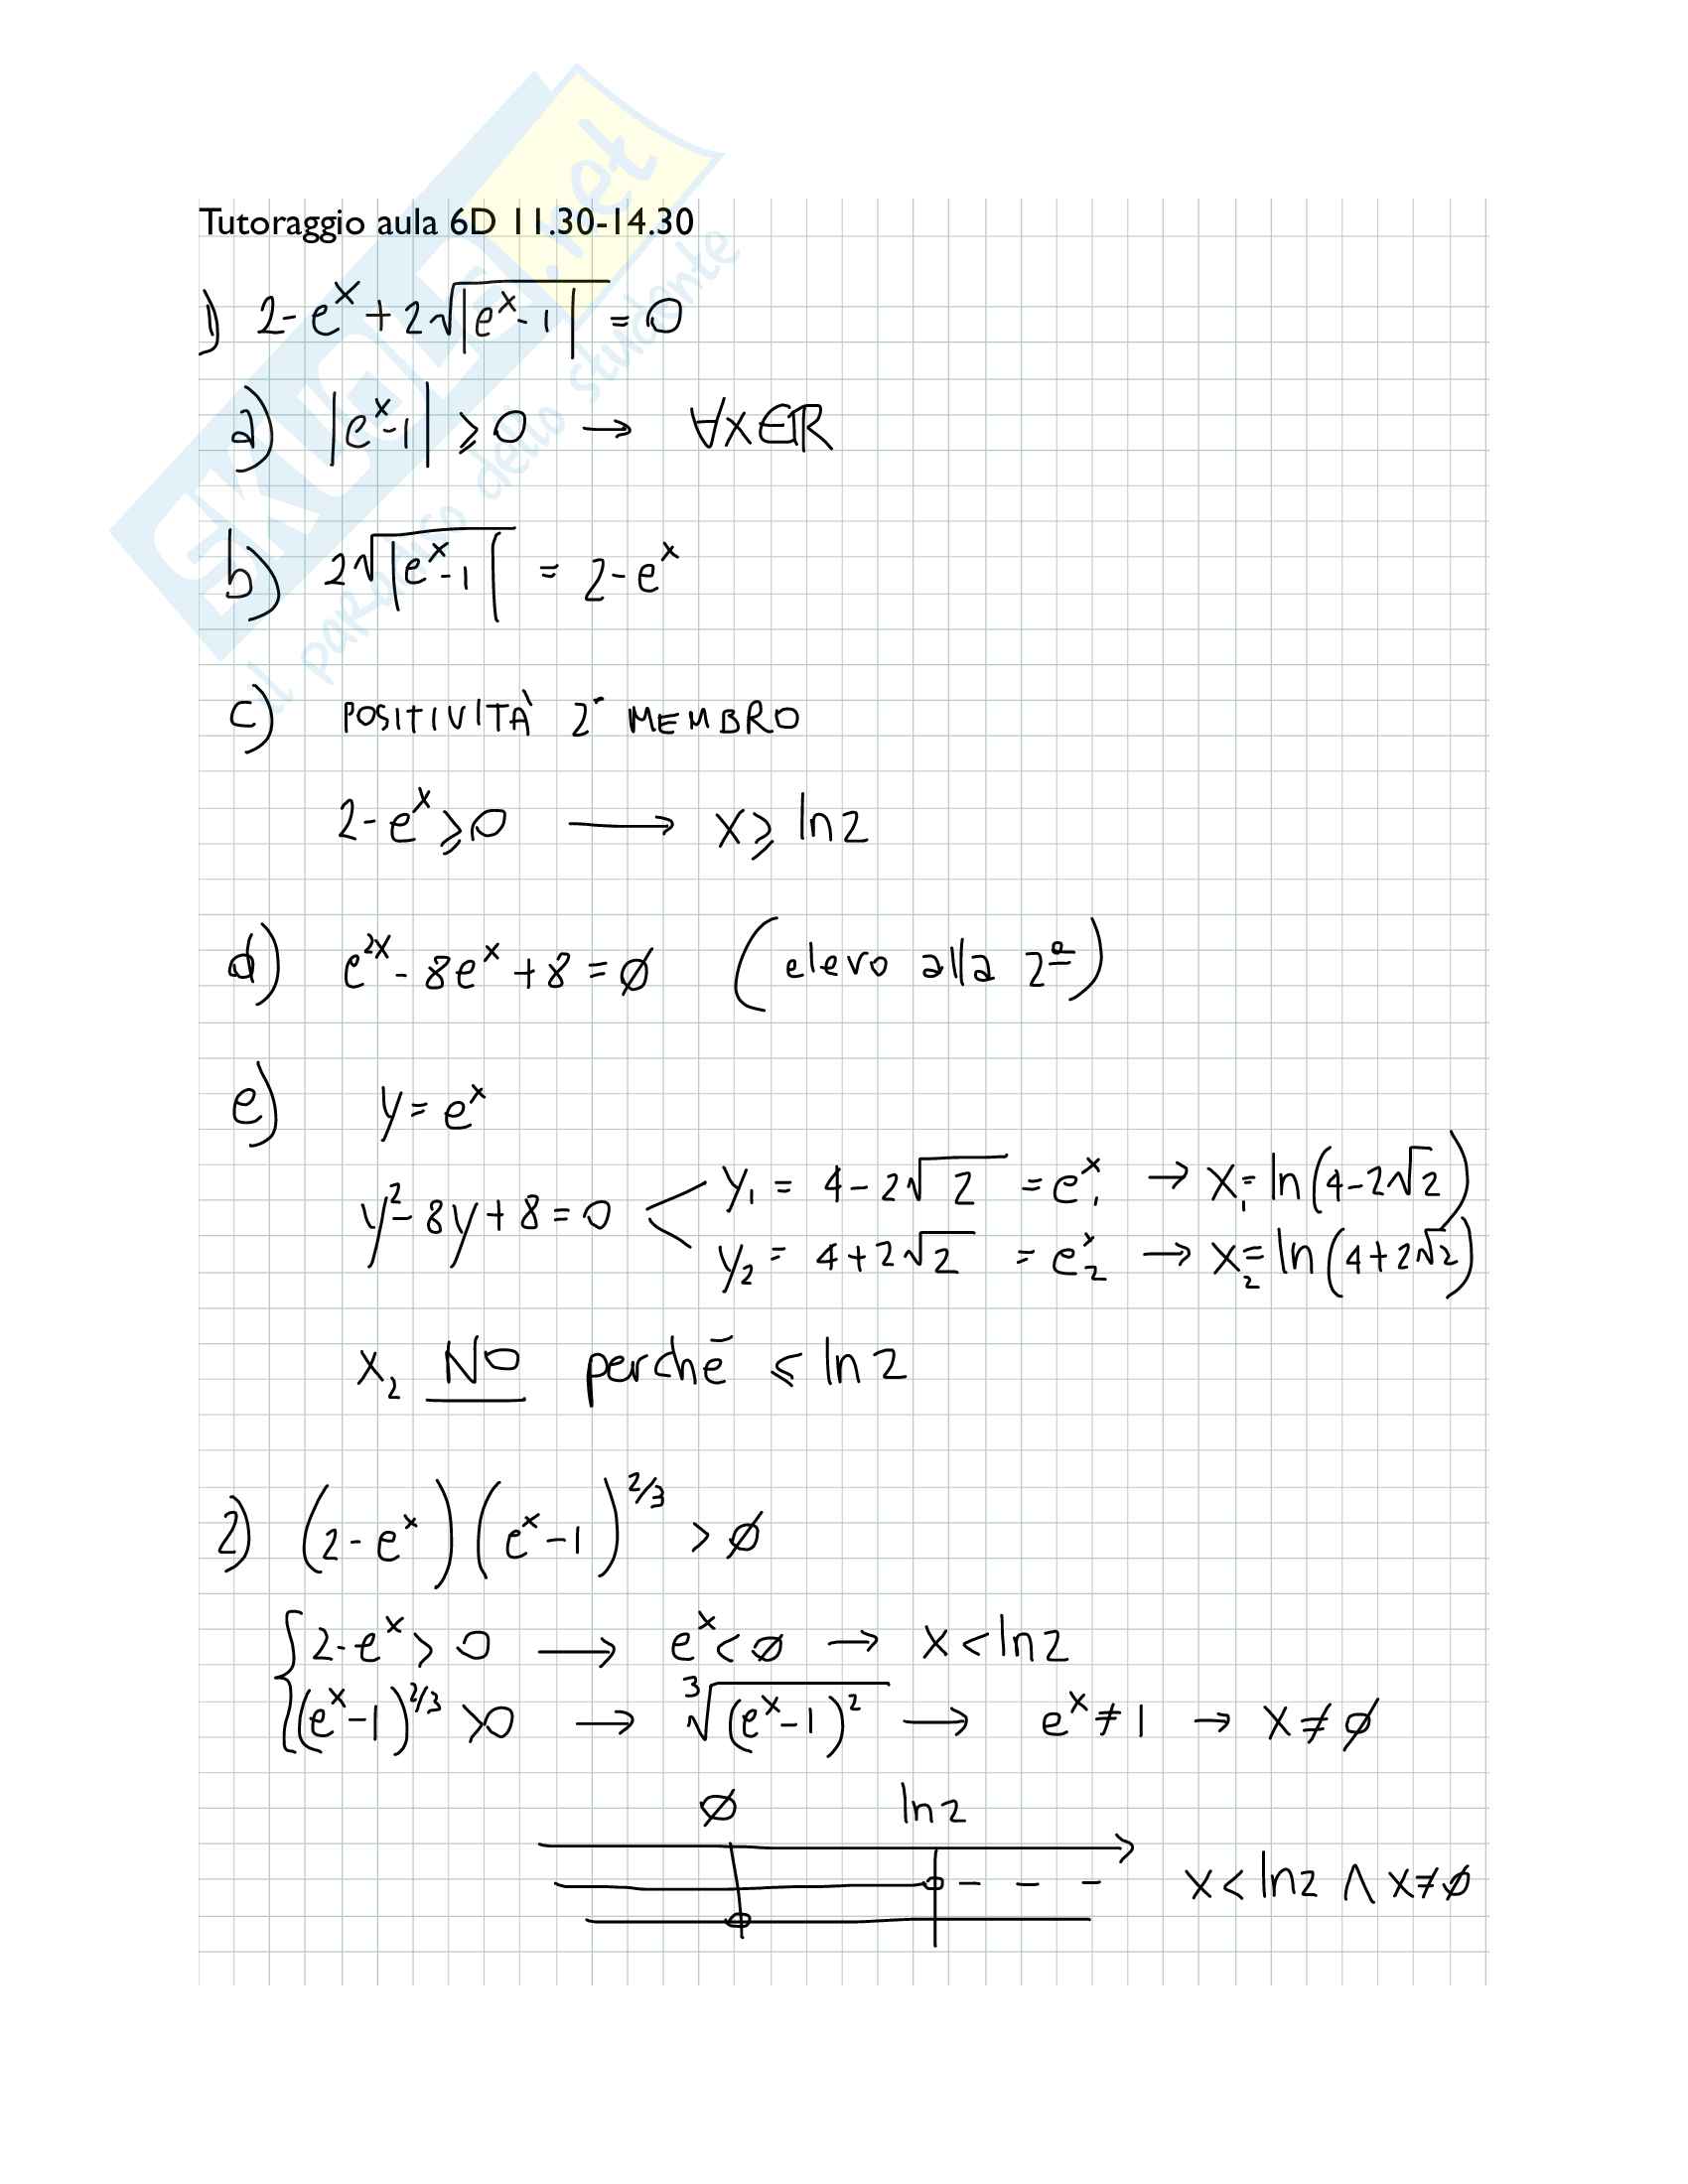 SKUOLA.net
il paradiso dello studente
Tutoraggio aula 6D 11.30-14.30
1) 2-e^x+2√|e^x-1| = 0
a) |e^x-1| ⩾ 0 → ∀x∈ℝ
b) 2√|e^x-1| = 2-e^x
c) POSITIVITÀ 2° MEMBRO
2-e^x ⩾ 0 → x ⩾ ln2
d) e^2x - 8e^x + 8 = ∅ (elevo alla 2ª)
e) y = e^x
y²-8y+8=0 < y₁ = 4-2√2 = e^x₁ → x₁ = ln(4-2√2)
y₂ = 4+2√2 = e^x₂ → x₂ = ln(4+2√2)
x₂ NO perchē ⩽ ln2
2) (2-e^x)(e^x-1)^2/3 > ∅
{2-e^x > 0 → e^x < ∅ → x < ln2
{(e^x-1)^2/3 > 0 → ³√(e^x-1)² → e^x ≠ 1 → x ≠ ∅
∅ ln2
x < ln2 ∧ x ≠ ∅